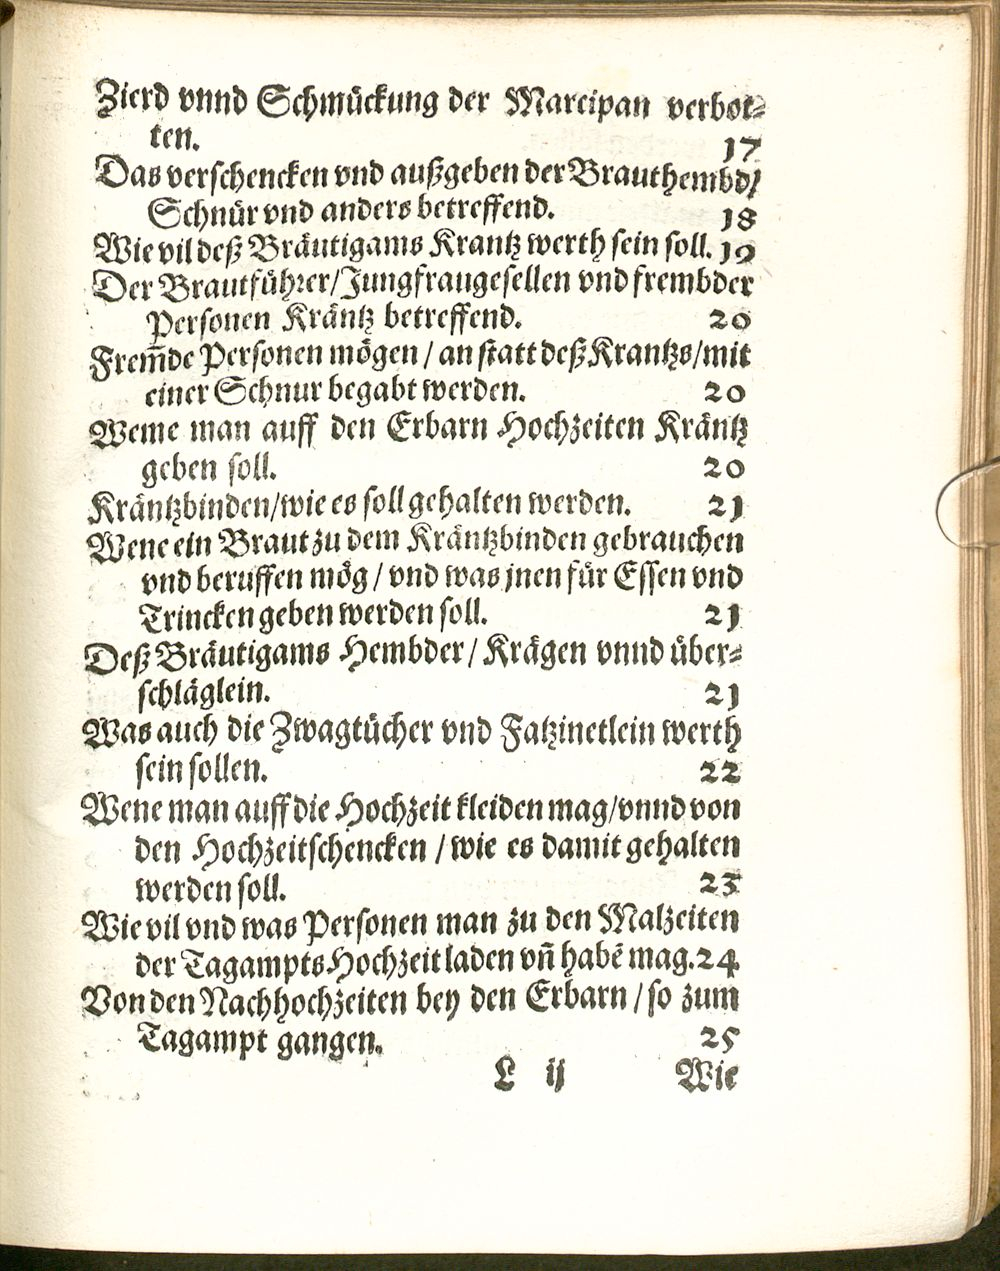 Zierd vnnd Schmückung der Marcipan verbot⸗
ten. 17
Das verschencken vnd außgeben der Brauthembd/
Schnür vnd anders betreffend. 18
Wie vil deß Bräutigams Krantz werth sein soll. 19
Der Brautführer/Jungfraugesellen vnd frembder
Personen Kräntz betreffend. 20
Frem̃de Personen mögen / an statt deß Krantzs/mit
einer Schnur begabt werden. 20
Weme man auff den Erbarn Hochzeiten Kräntz
geben soll. 20
Kräntzbinden/wie es soll gehalten werden. 21
Wene ein Braut zu dem Kräntzbinden gebrauchen
vnd beruffen mög / vnd was jnen für Essen vnd
Trincken geben werden soll. 21
Deß Bräutigams Hembder / Krägen vnnd über⸗
schläglein. 21
Was auch die Zwagtücher vnd Fatzinetlein werth
sein sollen. 22
Wene man auff die Hochzeit kleiden mag/vnnd von
den Hochzeitschencken / wie es damit gehalten
werden soll. 23
Wie vil vnd was Personen man zu den Malzeiten
der Tagampts Hochzeit laden vñ habẽ mag. 24
Von den Nachhochzeiten bey den Erbarn / so zum
Tagampt gangen. 25
L ij Wie